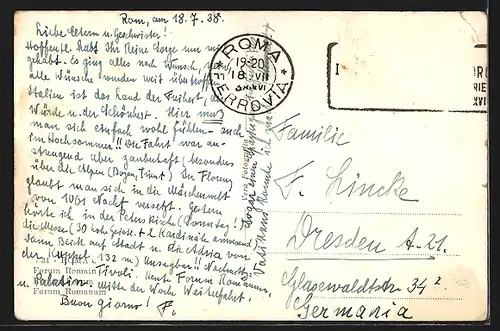 Rom, am 18.7.38.
Liebe Eltern u. Geschwister!
Hoffentl. habt Ihr keine Sorge um mich
gehabt. Es ging alles nach Wunsch, nein,
alle Wünsche wurden weit übertroffen
Italien ist das Land der Freiheit, der
Würde u. der Schönheit. Hier muß
man sich einfach wohl fühlen – auch
im Hochsommer!! Die Fahrt war an-
strengend aber zauberhaft (besonders
über die Alpen (Bozen, Trient). In Florenz
glaubt man sich in die Märchenwelt
von 1001 Nacht versetzt. Gestern
hörte ich in der Peterskirche (Sonntag!)
die Messe (30 hohe Geistl. + 2 Kardinäle anwesend)
dann Blick auf Stadt u. die Adria von
der Kuppel (132 m) Unsagbar!! Nachmitt.
Tivoli. Heute Forum Romanum
u. Palatin. Mitte der Woche Weiterfahrt.
Buon giorno! F.
ROMA
FERROVIA
19-20
18 VII
XVI
Forum Romain
Forum Romanum
Familie
F. Lincke
Dresden A. 21.
Glasewaldtstr. 34 2
Germania